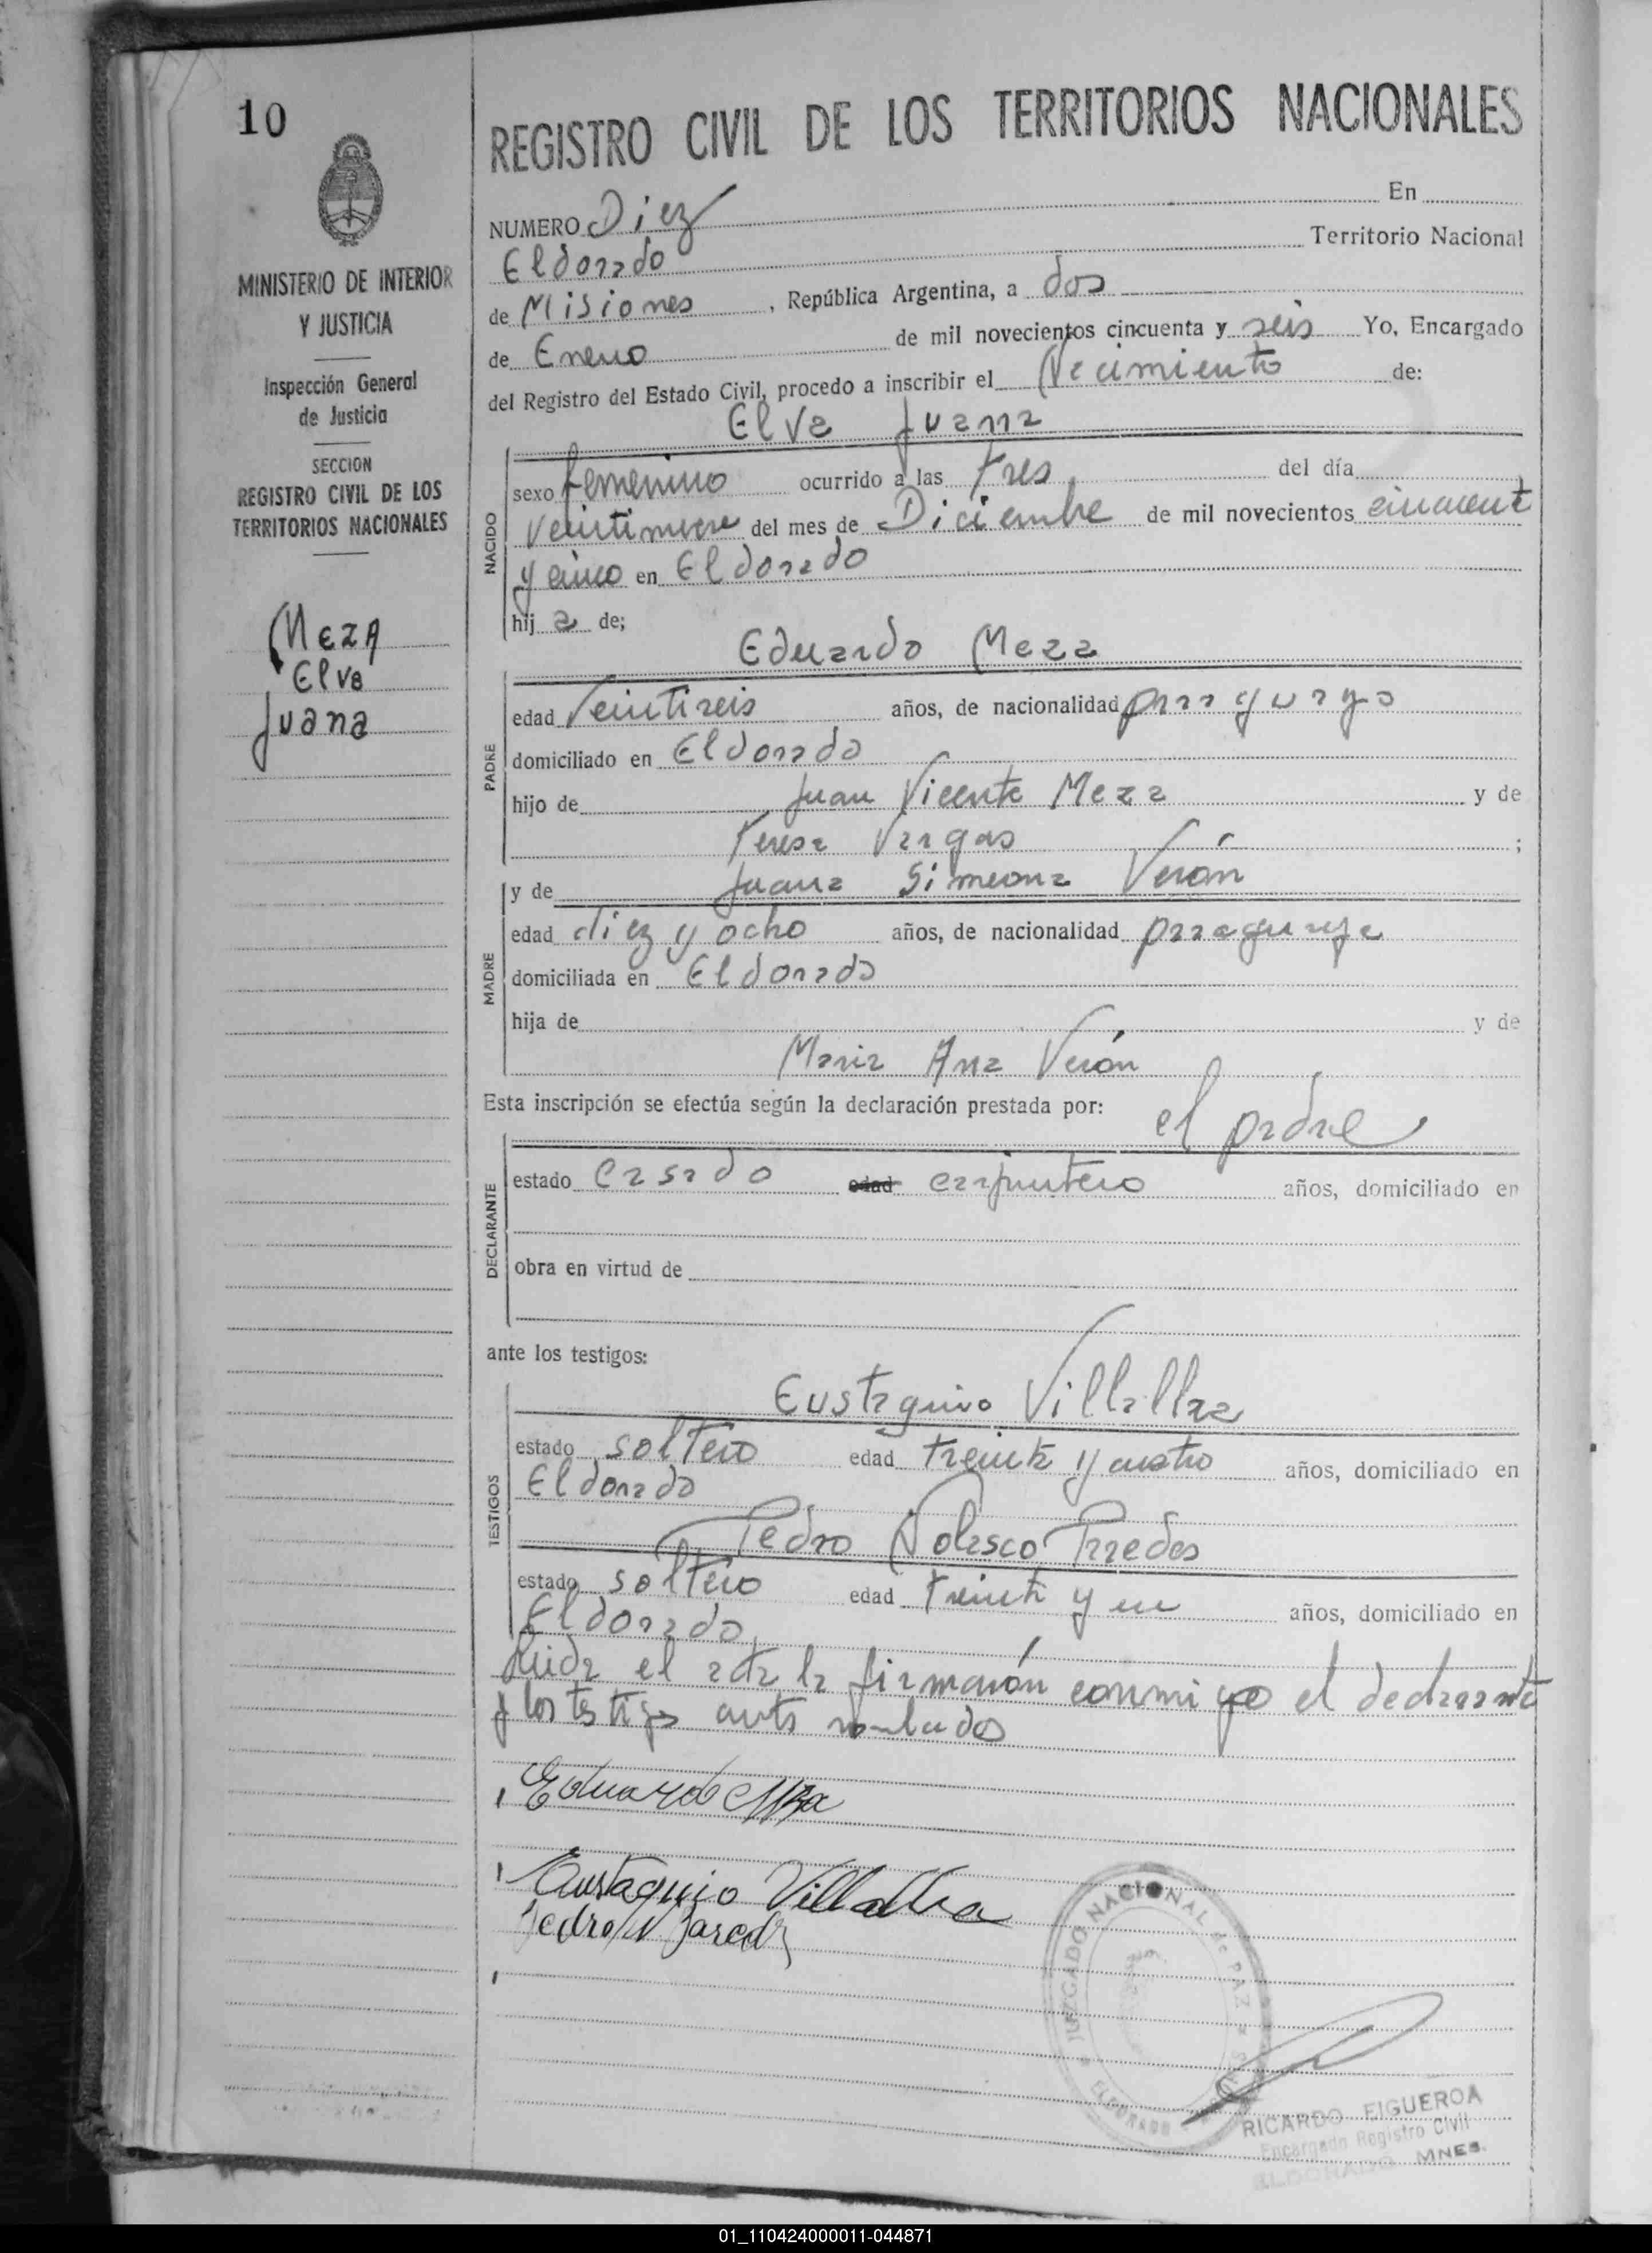 10
MINISTERIO DE INTERIOR
Y JUSTICIA
Inspección General
de Justicia
SECCION
REGISTRO CIVIL DE LOS
TERRITORIOS NACIONALES
MEZA
Elva
Juana
REGISTRO CIVIL DE LOS TERRITORIOS NACIONALES
NUMERO Diez En
Eldorado Territorio Nacional
de Misiones, República Argentina, a dos
de Enero de mil novecientos cincuenta y seis Yo, Encargado
del Registro del Estado Civil, procedo a inscribir el Nacimiento de:
Elva Juana
NACIDO
sexo femenino ocurrido a las tres del día
veintinueve del mes de Diciembre de mil novecientos cincuenta
y cinco en Eldorado
hij a de;
Eduardo Meza
PADRE
edad Veintiseis años, de nacionalidad paraguayo
domiciliado en Eldorado
hijo de Juan Vicente Meza y de
Teresa Vargas ;
y de Juana Simeona Verón
MADRE
edad diez y ocho años, de nacionalidad paraguaya
domiciliada en Eldorado
hija de y de
Maria Ana Verón
Esta inscripción se efectúa según la declaración prestada por: el padre
DECLARANTE
estado casado edad carpintero años, domiciliado en
obra en virtud de
ante los testigos:
Eustaquio Villalba
TESTIGOS
estado soltero edad treinta y cuatro años, domiciliado en
Eldorado
Pedro Nolasco Paredes
estado soltero edad treinta y un años, domiciliado en
Eldorado
Leida el acta la firmarón conmigo el declarante
y los testigos antes nombrados
Eduardo Meza
Eustaquio Villalba
Pedro N Paredes
JUZGADO NACIONAL de PAZ
ELDORADO
RICARDO FIGUEROA
Encargado Registro Civil
ELDORADO MNES.
01_110424000011-044871